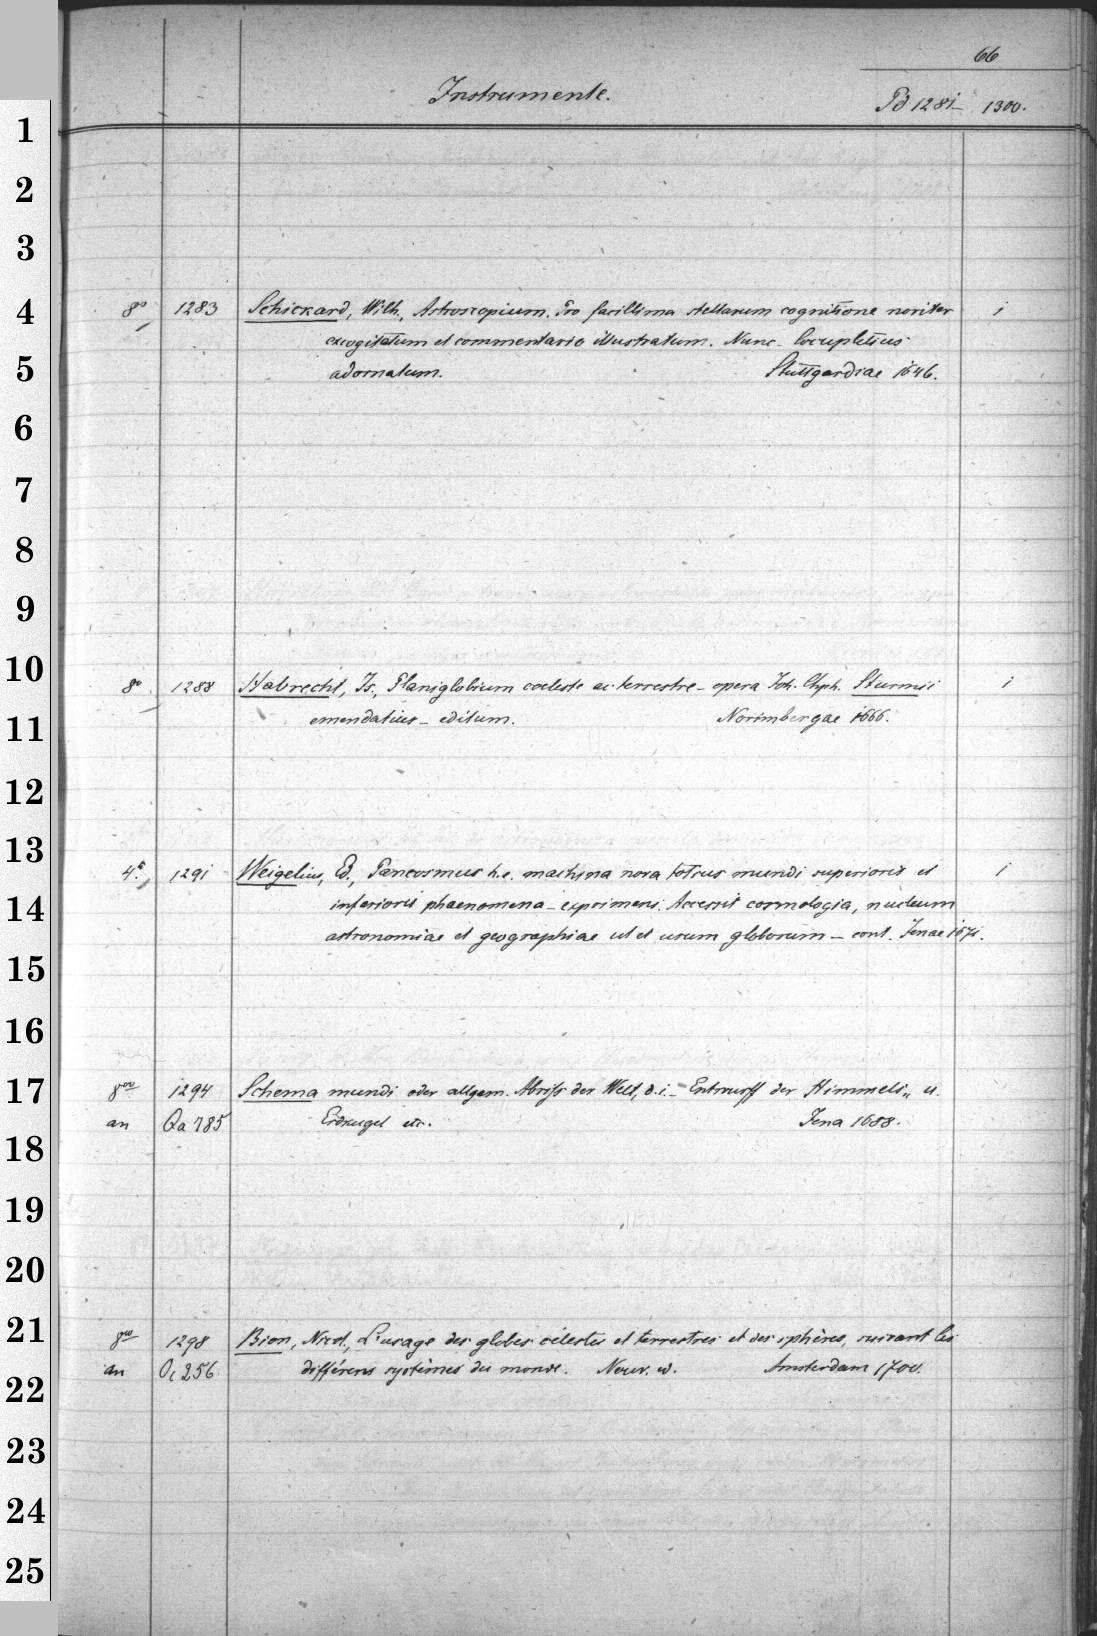 66
Instrumente.
Pd 1281_ 1300.
1
2
3
4
8° 1283 Schickard, Wilh., Astroscopium. Pro facillima stellarum cognitione noviter i
excogitatum et commentario illustratum. Nunc _ locupletius
5
adornatum. Stuttgardiae 1646.
6
7
8
9
10
8° 1288 Habrecht, Is., Planiglobium coeleste ac terrestre _ opera Joh. Chph. Sturmii i
11
emendatius _ editum. Norimbergae 1666.
12
13
4° 1291 Weigelius, E., Pancosmus h. e. machina nova totius mundi superioris et i
14
inferioris phaenomena _ exprimens. Accessit cosmologia, nucleum
astronomiae et geographiae ut et usum globorum _ cont. Jenae 1671.
15
16
17
8° 1294 Schema mundi oder allgem. Abriss der Welt, d. i. _ Entwurff der Himmels„ u.
an Qa 785 Erdkugel etc. Jena 1688.
18
19
20
21
8° 1298 Bion, Nicol., L'usage des globes célestes et terrestres et des sphères, suivant les
an Oc 256 différens systèmes du monde. Nouv. éd. Amsterdam 1700.
22
23
24
25